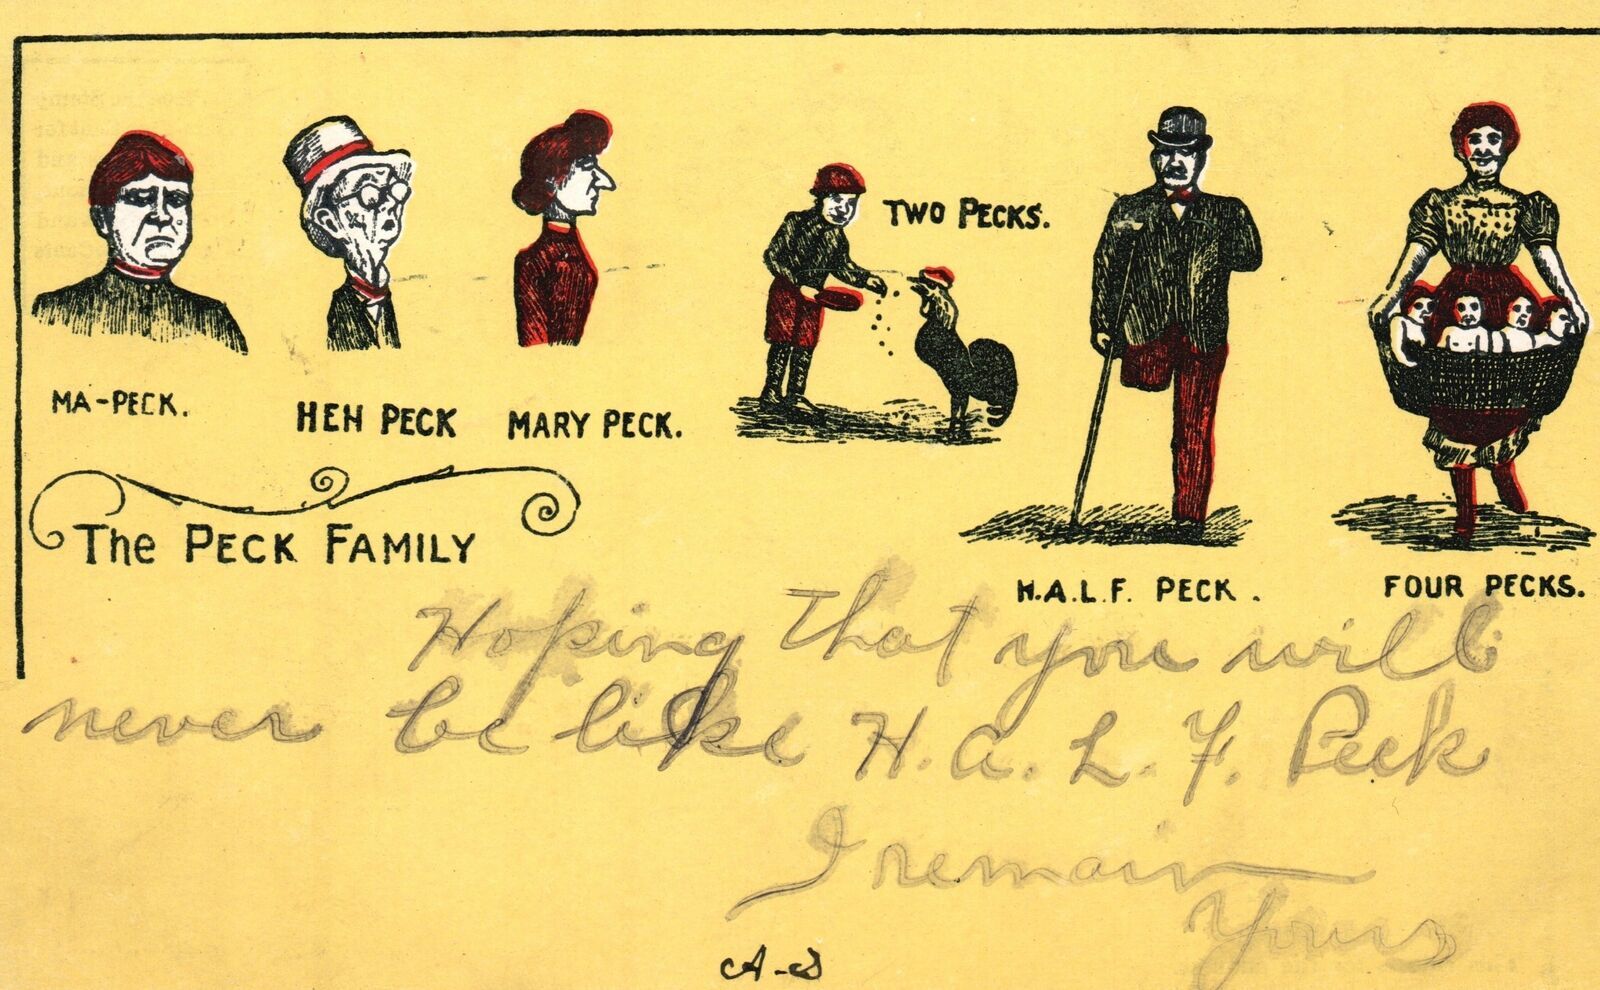 TWO PECKS.
MA-PECK.
HEN PECK
MARY PECK.
The PECK FAMILY
H.A.L.F. PECK.
FOUR PECKS.
Hoping that you will
never be like H.A.L.F. Peck
I remain
Yours
A-S